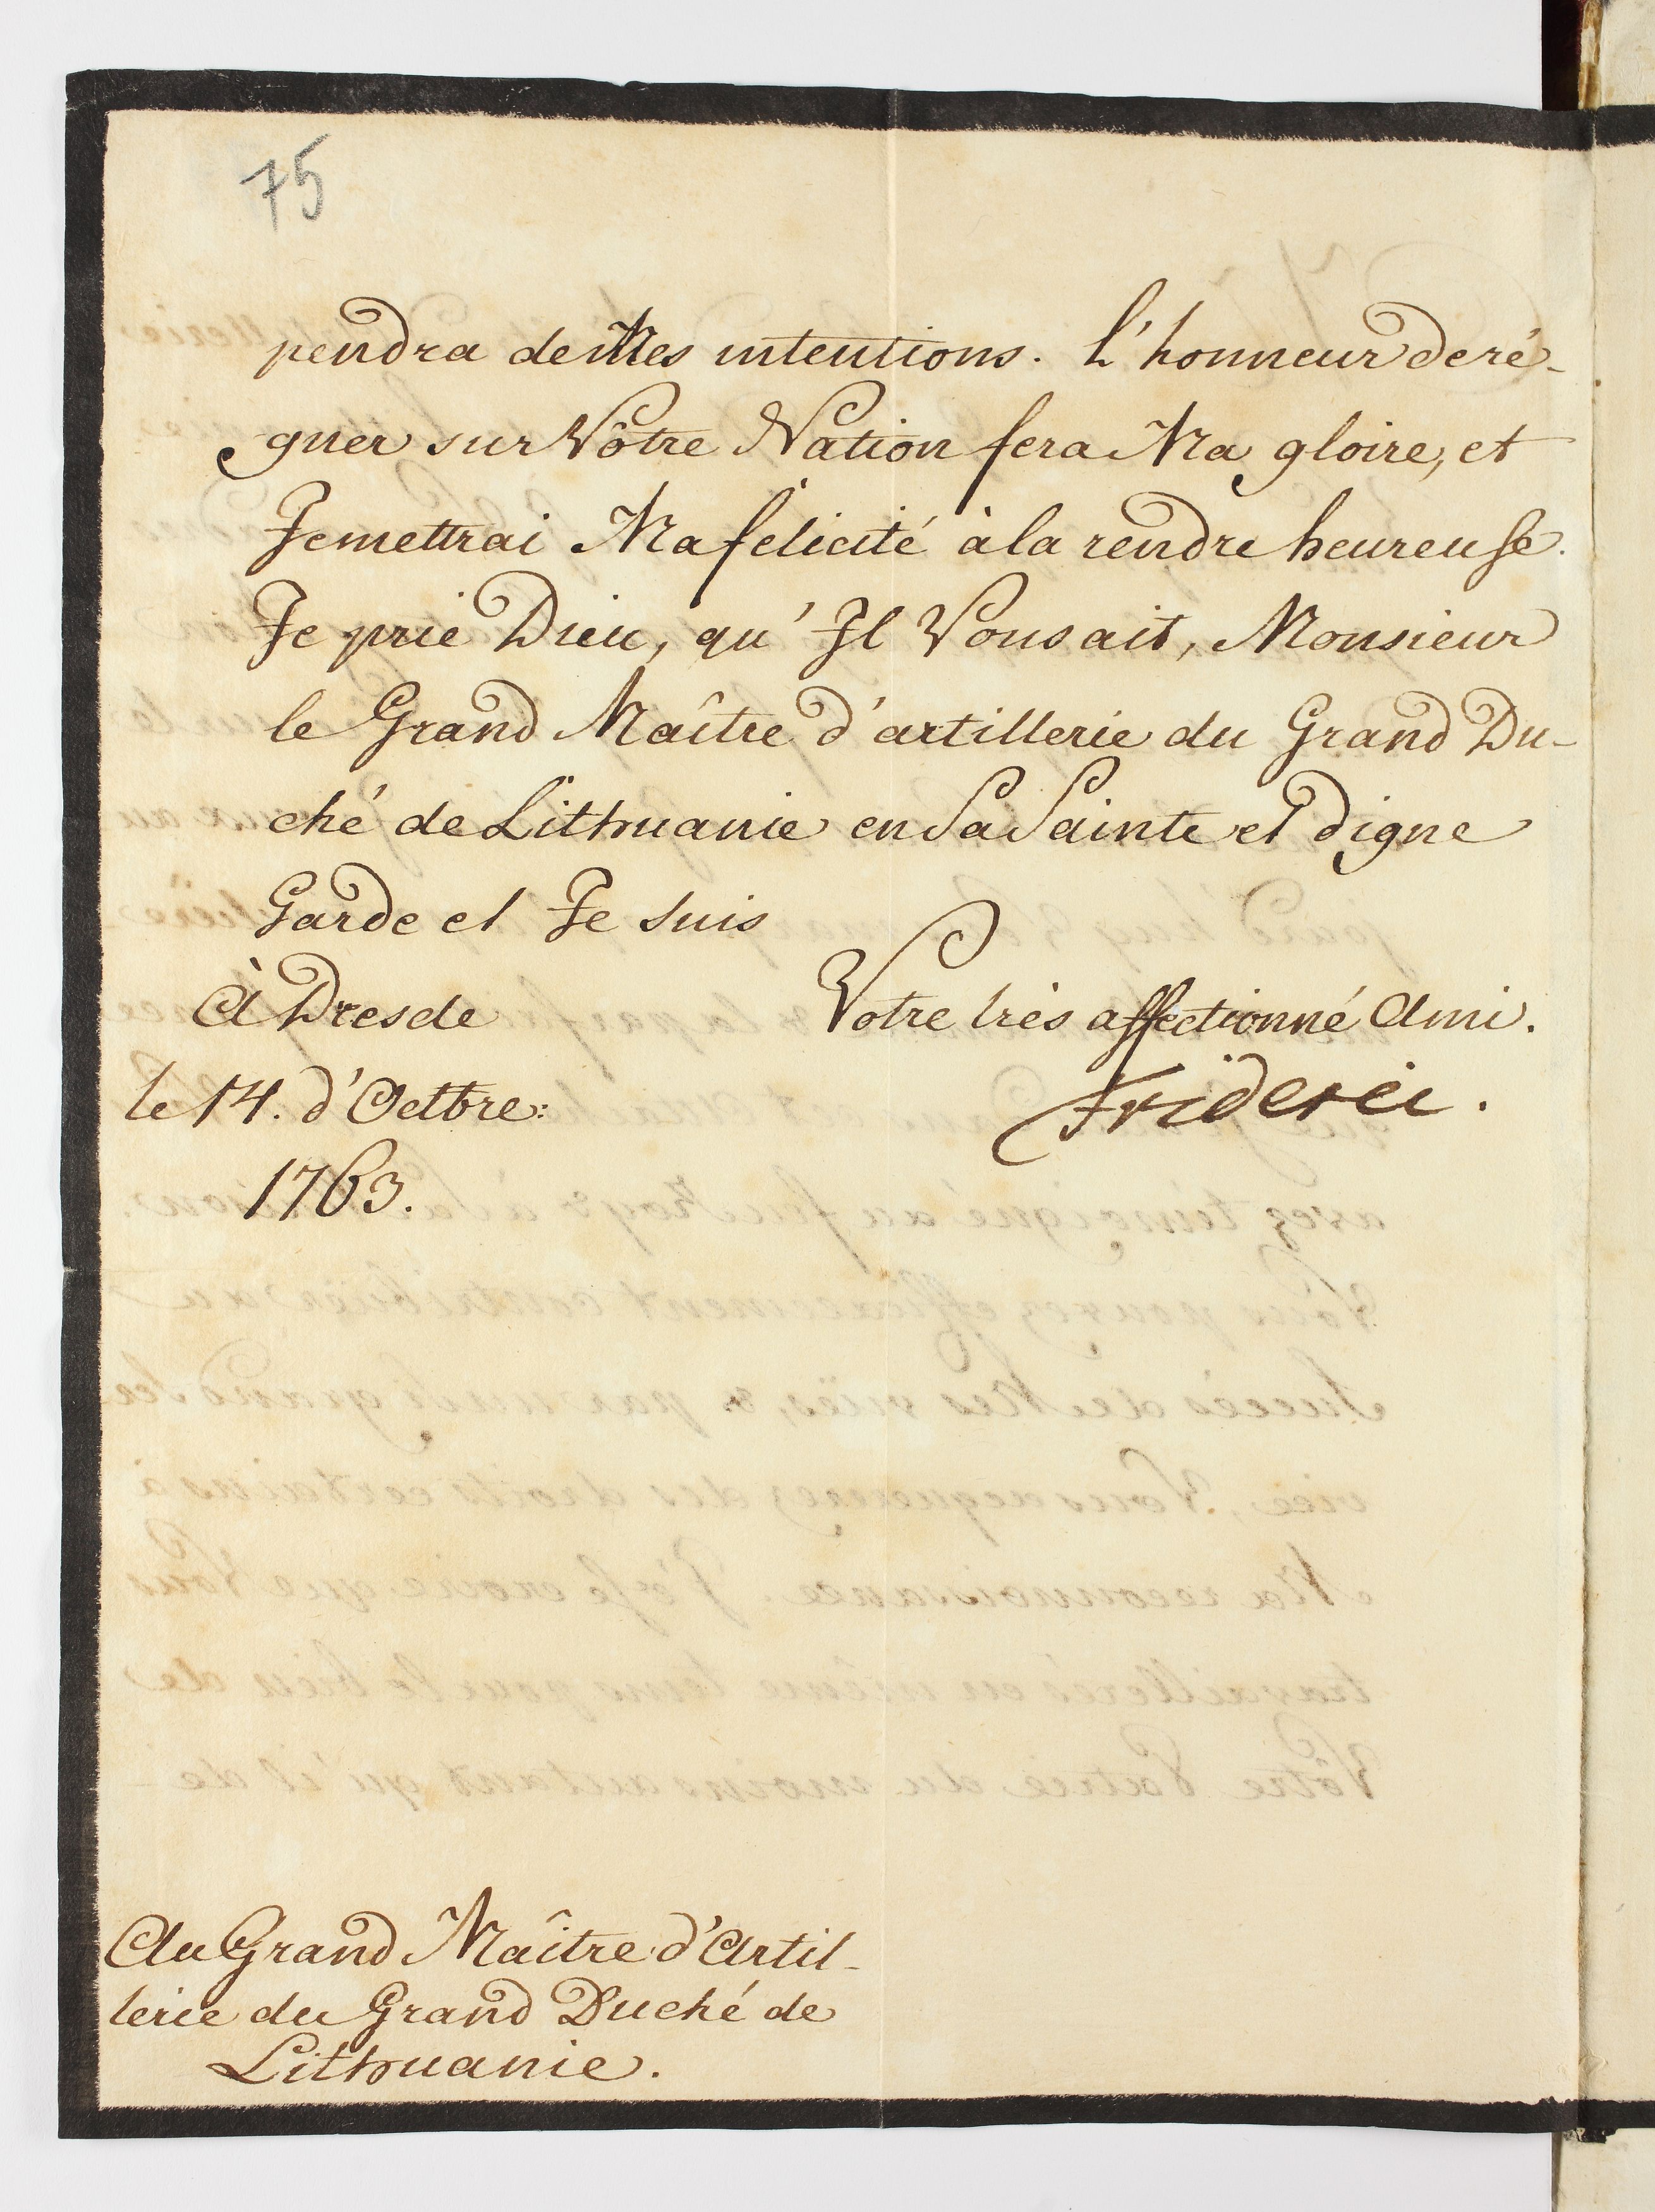 75
pendra de Mes intentions. L'honneur de ré-
gner sur Vôtre Nation fera Ma gloire, et
Je mettrai Ma félicité à la rendre heureuse.
Je prie Dieu, qu'Il Vous ait, Monsieur
le Grand Maître d'artillerie du Grand Du-
ché de Lithuanie en Sa Sainte et digne
Garde et Je suis
à Dresde
Votre très affectionné Ami.
le 14. d'Octbre:
Fridéric.
1763.
Au Grand Maître d'Artil-
lerie du Grand Duché de
Lithuanie.